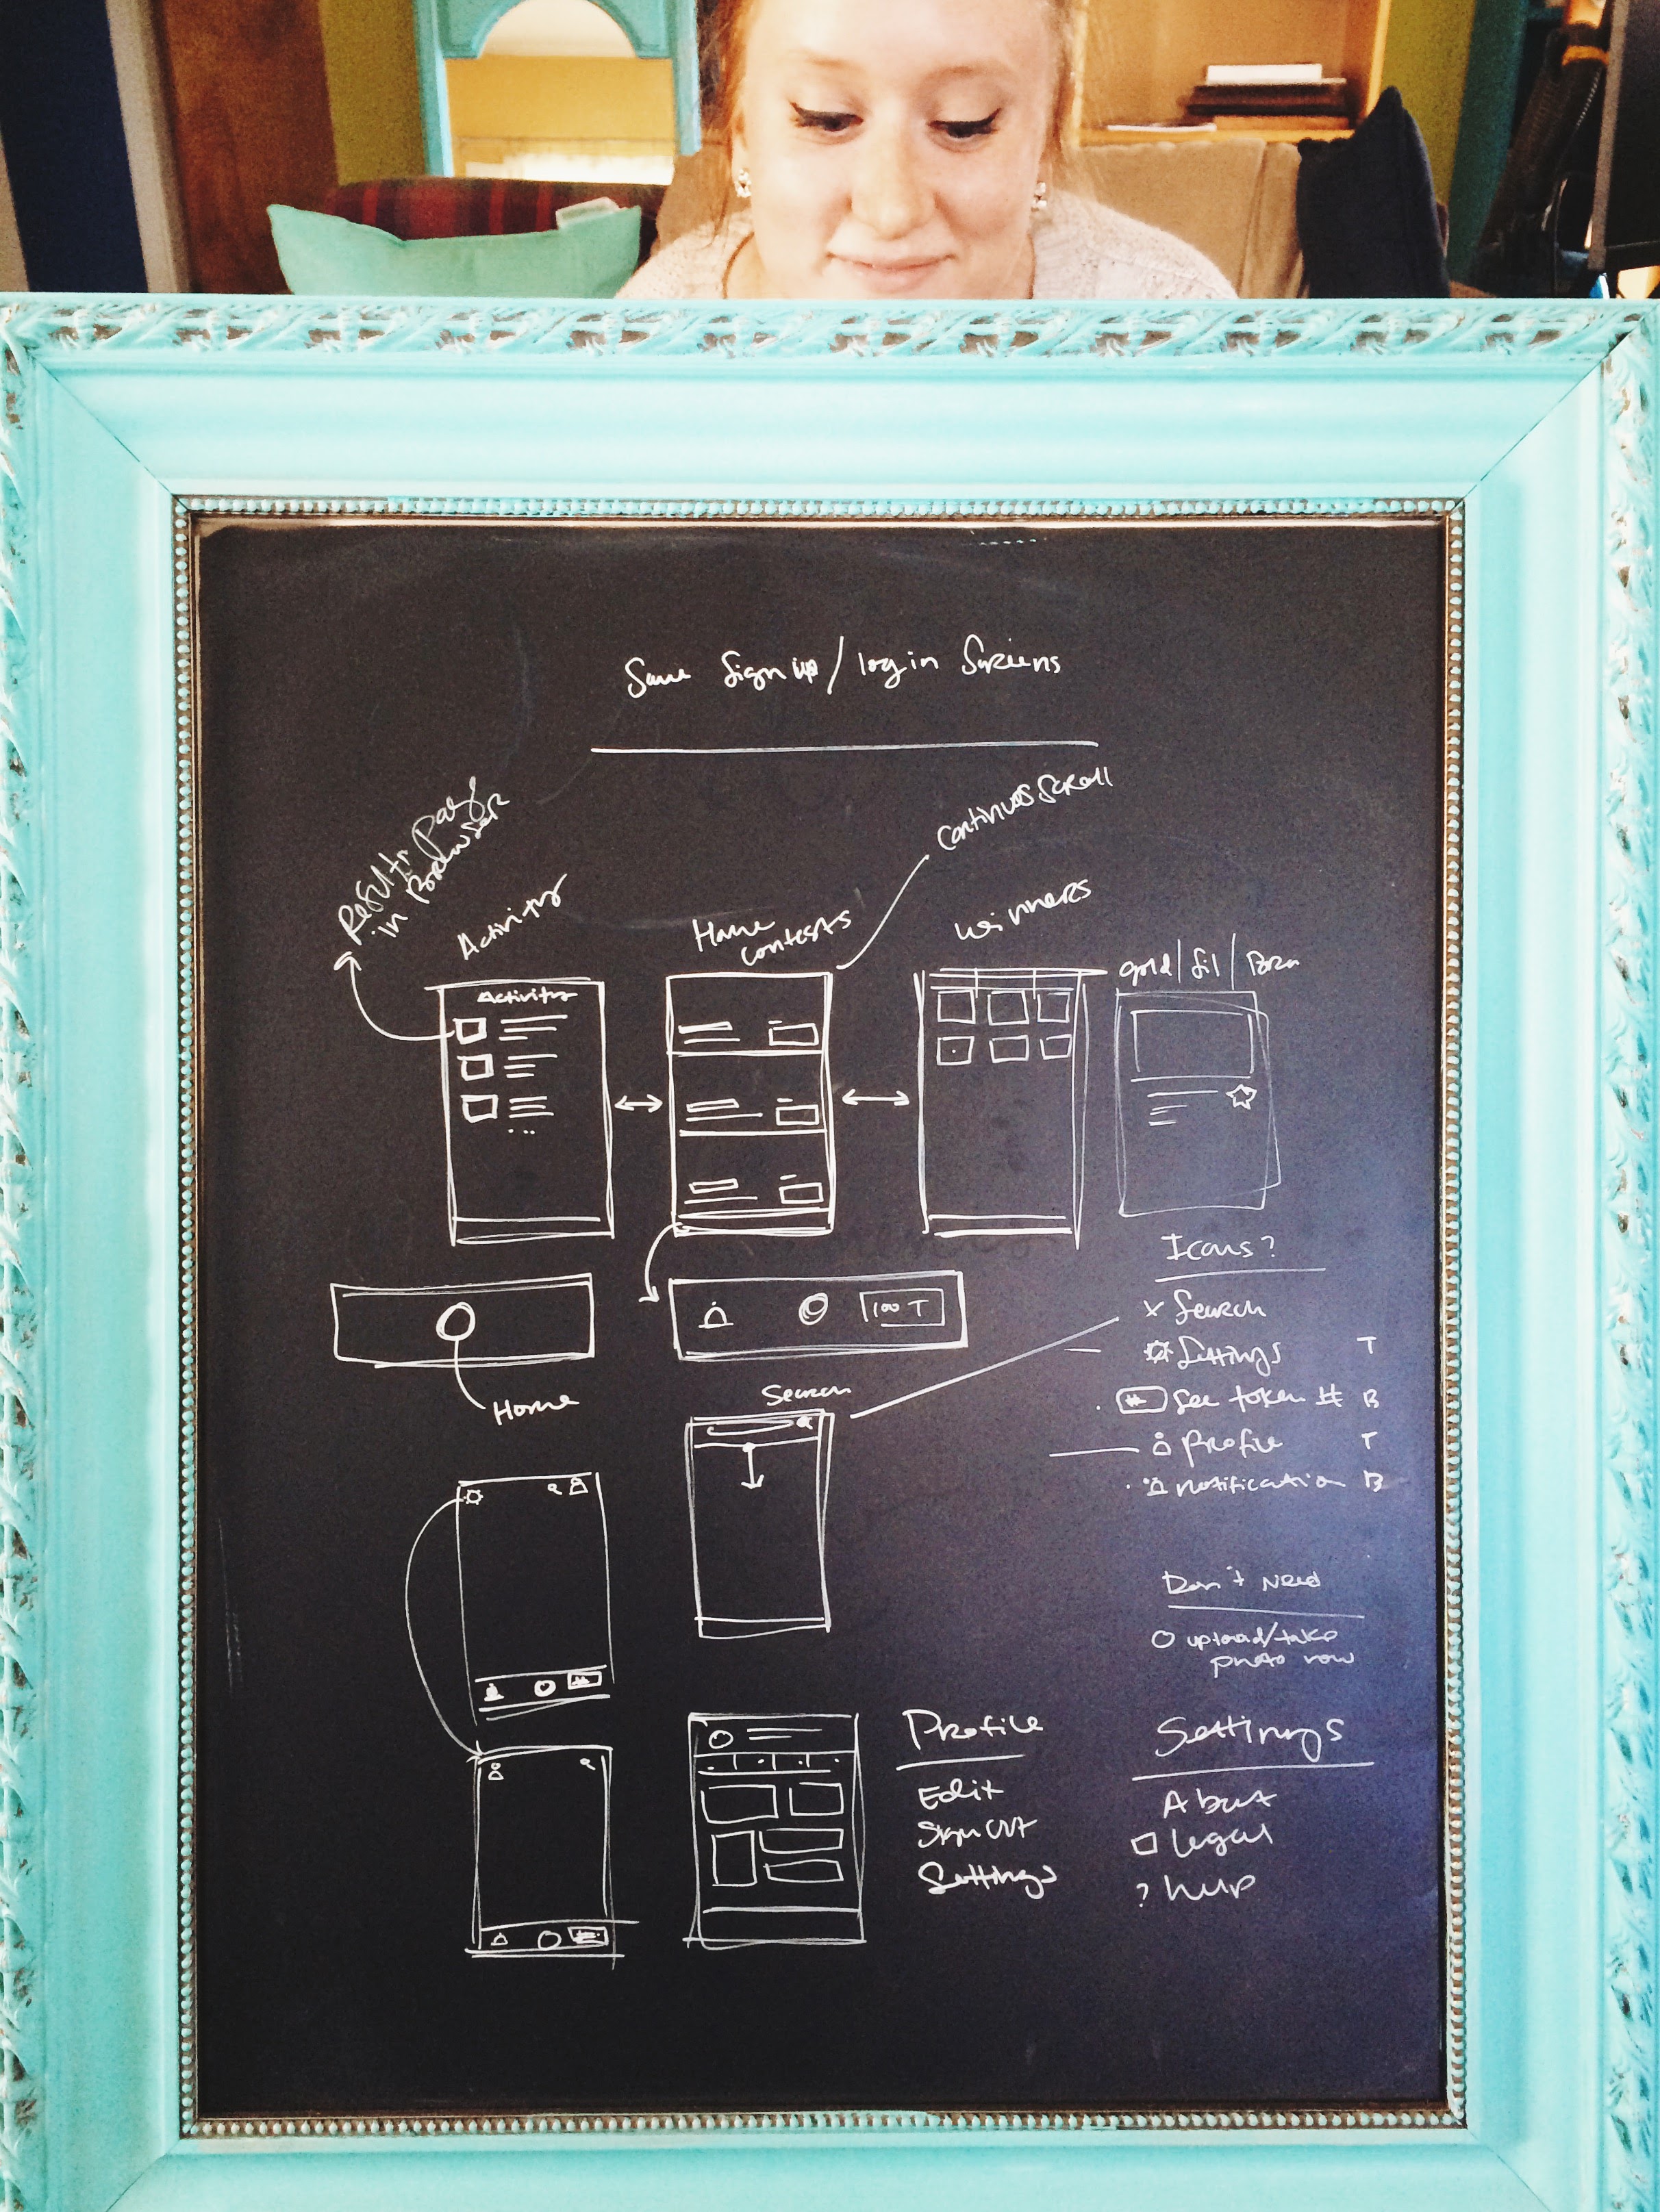 Same Sign up/login Screens
Continuos Scroll
Results page
in Browser
Activity
Home
contests
Winners
gold/Sil/Bron
Activity
Icons?
x Search
Settings T
100 T
# See token # B
Home
Search
Profile T
notification B
Don't Need
upload/take
photo row
Profile
Settings
Edit
About
Sign out
Legal
Settings
? help